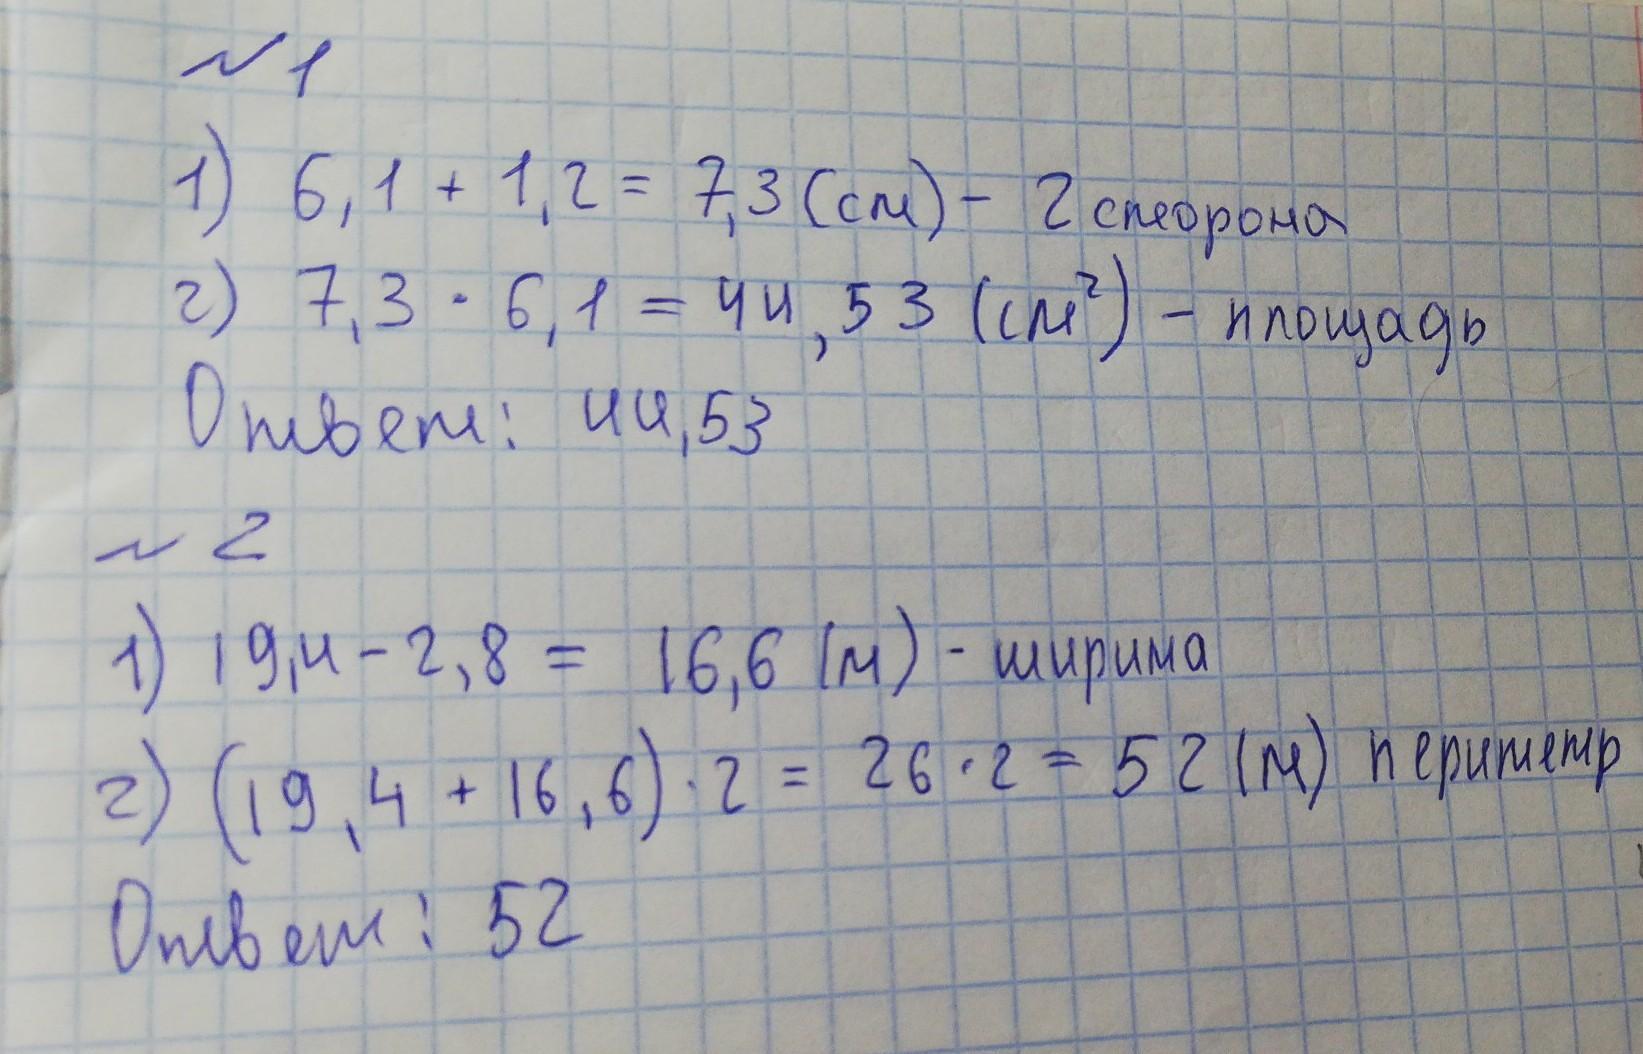 № 1
1) 6,1 + 1,2 = 7,3 (см) - 2 сторона
2) 7,3 · 6,1 = 44,53 (см²) - площадь
Ответ: 44,53
№ 2
1) 19,4 - 2,8 = 16,6 (м) - ширина
2) (19,4 + 16,6) · 2 = 26 · 2 = 52 (м) периметр
Ответ: 52